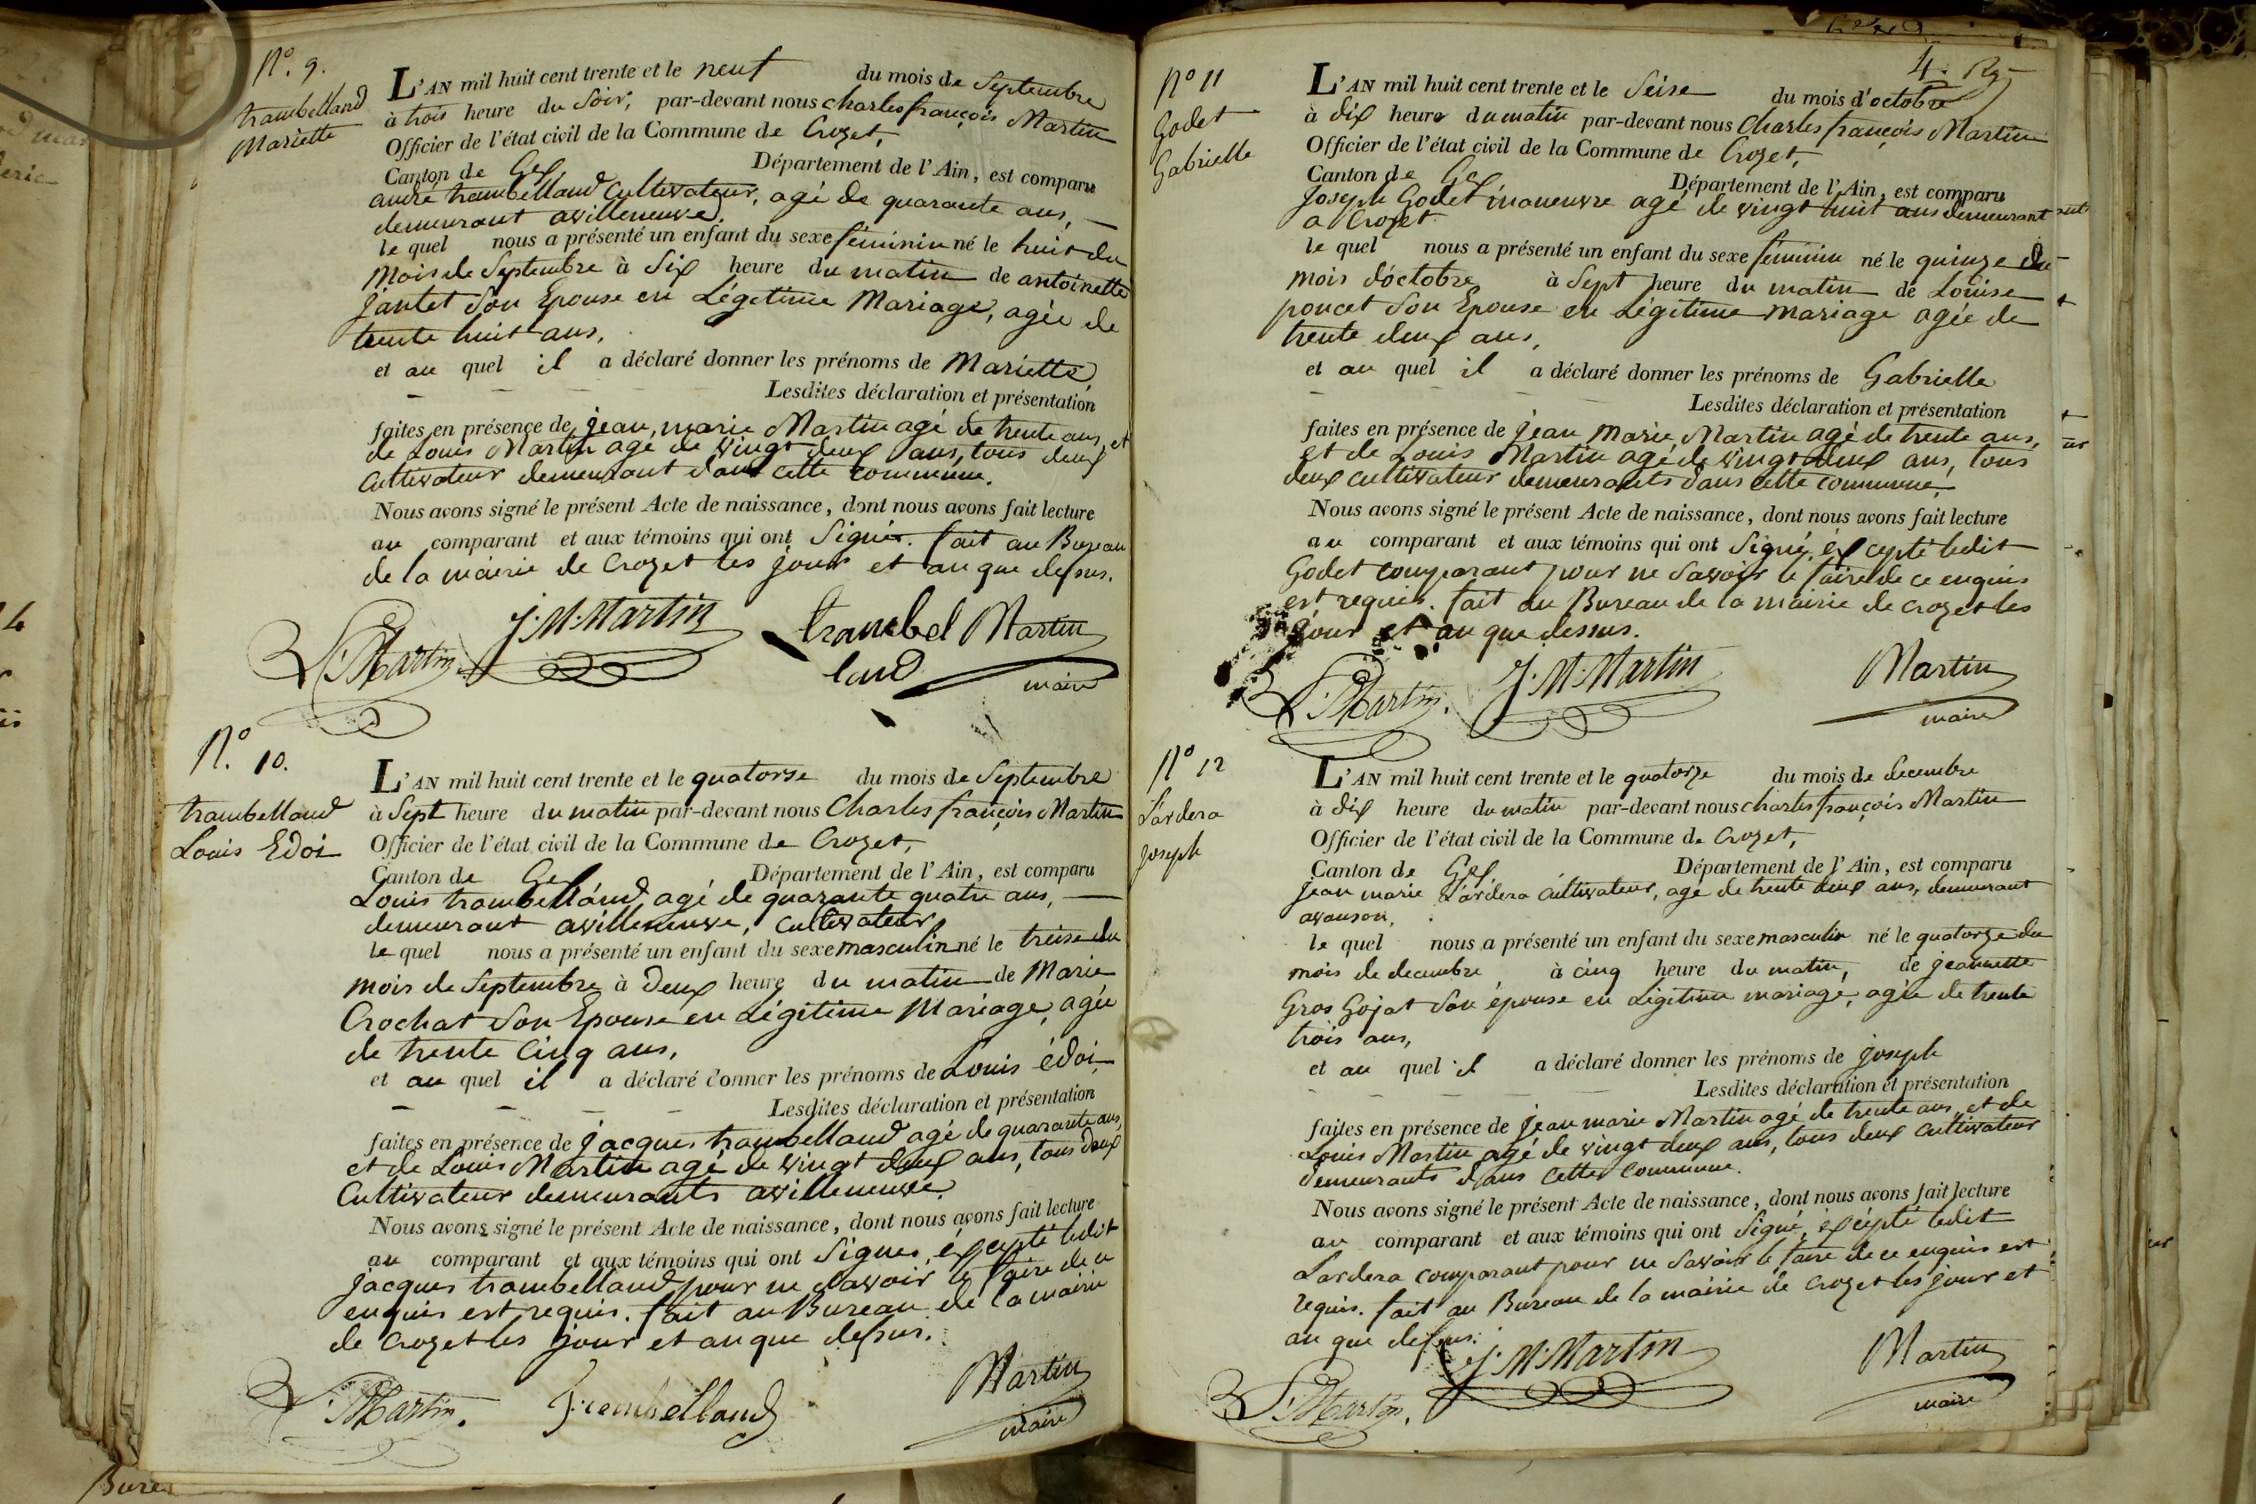 N.° 9.
trambelland
Mariette
L'AN mil huit cent trente et le neuf du mois de Septembre
à trois heure du Soir, par-devant nous charles françois Martin
Officier de l'état civil de la Commune de Crozet,
Canton de Gex, Département de l'Ain, est comparu
andré trambelland cultivateur, agé de quarante ans,
demeurant avilleneuve.
le quel nous a présenté un enfant du sexe féminin né le huit du
mois de Septembre à Six heure du matin de antoinette
jantet Son Epouse en Légetime Mariage, agée de
trente huit ans,
et au quel il a déclaré donner les prénoms de Mariette,
Lesdites déclaration et présentation
faites en présence de jean, marie Martin agé de trente ans, et
de Louis Martin agé de vingt deux ans, tous deux
cultivateur demeurant dans cette commune.
Nous avons signé le présent Acte de naissance, dont nous avons fait lecture
au comparant et aux témoins qui ont Signés. fait au Bureau
de la mairie de Crozet les jour et an que dessus.
L. Martin J. M. Martin trambel Martin
land maire
N.° 10.
trambelland
Louis Edoi
L'AN mil huit cent trente et le quatorse du mois de Septembre
à Sept heure du matin par-devant nous Charles françois Martin
Officier de l'état civil de la Commune de Crozet,
Canton de Gex, Département de l'Ain, est comparu
Louis trambelland, agé de quarante quatre ans,
demeurant avilleneuve, cultivateur
le quel nous a présenté un enfant du sexe masculin né le treise du
mois de Septembre à Deux heure du matin de Marie
Crochat Son Epouse en Légitime Mariage, agée
de trente cinq ans,
et au quel il a déclaré donner les prénoms de Louis édoi,
Lesdites déclaration et présentation
faites en présence de jacques trambelland agé de quarante ans,
et de Louis Martin agé de vingt deux ans, tous deux
Cultivateur demeurants avilleneuve.
Nous avons signé le présent Acte de naissance, dont nous avons fait lecture
au comparant et aux témoins qui ont Signés, éxcepté ledit
jacques trambelland pour ne Savoir le faire de ce
enquis est requis. fait au Bureau de la mairie
de Crozet les jour et an que dessus.
L. Martin. trembelland Martin
maire
4.
N° 11
Godet
Gabrielle
L'AN mil huit cent trente et le Seise du mois d'octobre
à dix heure du matin par-devant nous Charles françois Martin
Officier de l'état civil de la Commune de Crozet,
Canton de Gex Département de l'Ain, est comparu
Joseph Godet maneuvre agé de vingt huit ans demeurant
a Crozet
le quel nous a présenté un enfant du sexe féminin né le quinze du
mois d'octobre à Sept heure du matin de Louise
poncet Son Epouse en Légitime mariage agée de
trente deux ans,
et au quel il a déclaré donner les prénoms de Gabrielle
Lesdites déclaration et présentation
faites en présence de jean marie Martin agé de trente ans,
et de Louis Martin agé de vingt deux ans, tous
deux cultivateur demeurants dans cette commune,
Nous avons signé le présent Acte de naissance, dont nous avons fait lecture
au comparant et aux témoins qui ont Signé, éxcepté ledit
Godet comparant pour ne Savoir le faire de ce enquis
est requis. fait au Bureau de la mairie de crozet les
jour et an que dessus.
L. Martin. J. M. Martin Martin
maire
N° 12
Lardera
joseph
L'AN mil huit cent trente et le quatorze du mois de decembre
à dix heure du matin par-devant nous charles françois Martin
Officier de l'état civil de la Commune de Crozet,
Canton de Gex, Département de l'Ain, est comparu
jean marie Lardera cultivateur, agé de trente deux ans, demeurant
avanson,
le quel nous a présenté un enfant du sexe masculin né le quatorze du
mois de decembre à cinq heure du matin, de jeannette
Gros Gojat Son épouse en Légitime mariage, agée de trente
trois ans,
et au quel il a déclaré donner les prénoms de joseph
Lesdites déclaration et présentation
faites en présence de jean marie Martin agé de trente ans, et de
Louis Martin agé de vingt deux ans, tous deux cultivateur
demeurants dans cette commune.
Nous avons signé le présent Acte de naissance, dont nous avons fait lecture
au comparant et aux témoins qui ont Signé, éxcépté ledit
Lardera comparant pour ne Savoir le faire de ce enquis est
requis. fait au Bureau de la mairie de Crozet les jour et
an que dessus.
L. Martin. J. M. Martin Martin
maire